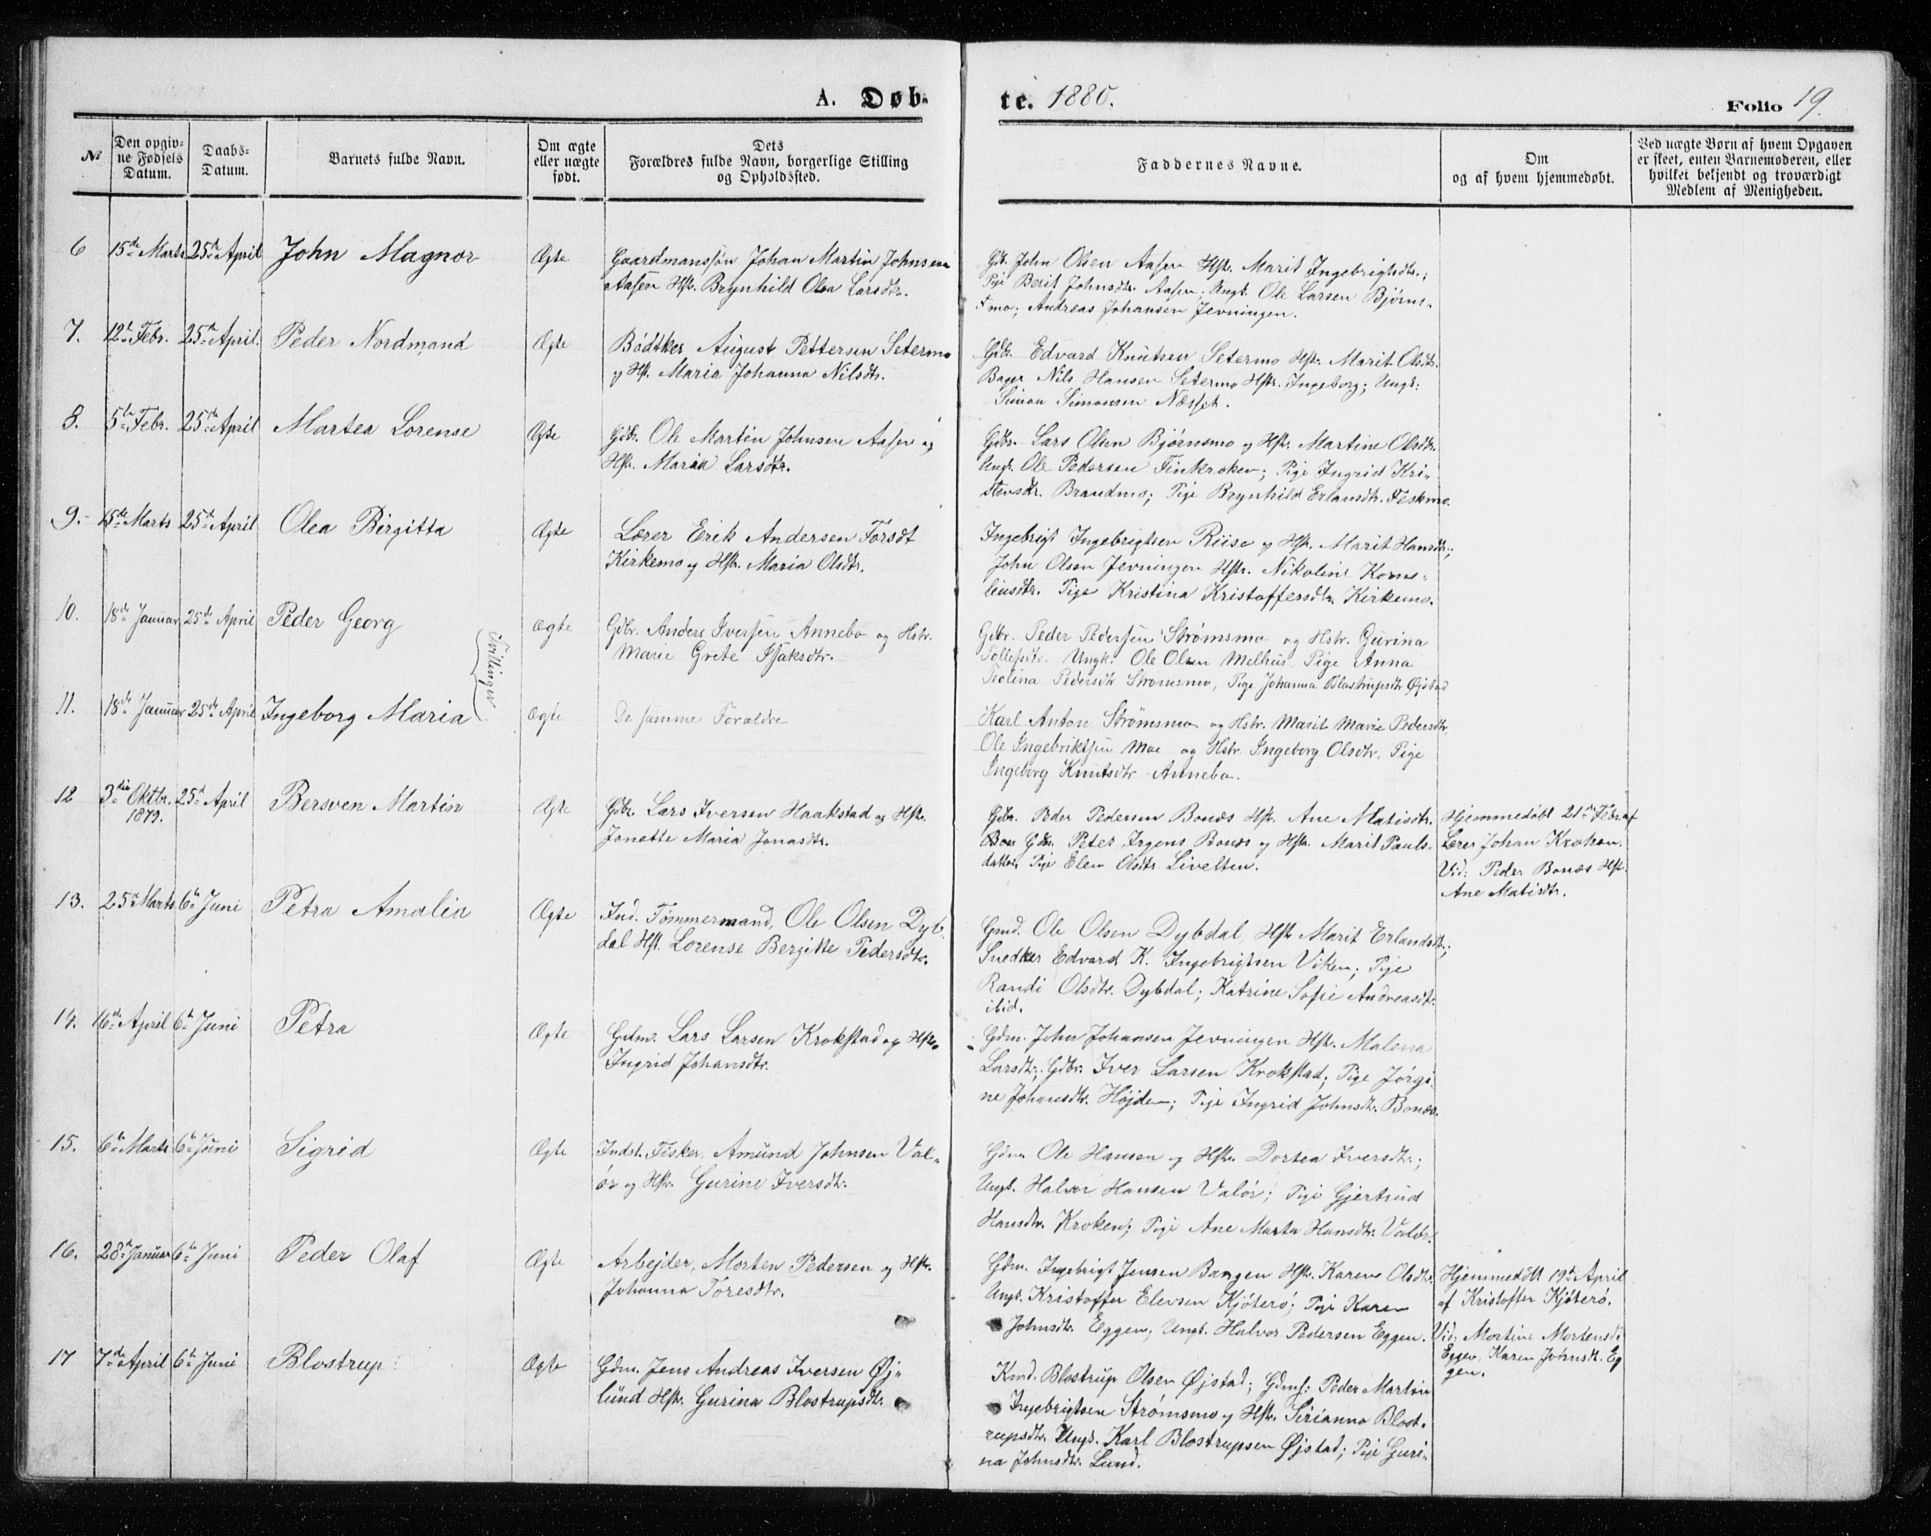 A. Døb-
te. 1880.
Folio 19.
№
Den opgiv-
ne Fødsels
Datum.
Daabs-
Datum.
Barnets fulde Navn.
Om ægte
eller uægte
født.
Dets
Forældres fulde Navn, borgerlige Stilling
og Opholdssted.
Faddernes Navne.
Om
og af hvem hjemmedøbt.
Ved uægte Børn af hvem Opgaven
er skeet, enten Barnemoderen, eller
hvilket bekjendt og troværdigt
Medlem af Menigheden.
6 15de Marts 25de April John Magnor Ægte
Gaardmanssøn Johan Martin Johnsen
Aasen Hst. Brynhild Olea Larsdtr.
Gb. John Olsen Aasen Hst. Marit Ingebrigtsdtr.;
Pige Berit Johnsdtr. Aasen, Ungk. Ole Larsen Bjørns-
mo; Andreas Johansen Jevningen.
7. 12te Febr. 25de April. Peder Nordmand Ægte
Bødtker August Pettersen Setermo
og Hst. Maria Johanna Nilsdtr.
Gdbr. Edvard Knutsen Setermo Hst. Marit Olsdtr.
Bager Nils Hansen Setermo Hstr. Ingeborg; Ungk.
Simon Simonsen Næsset.
8. 5te Febr. 25de April Martea Lorense Ægte
Gdbr. Ole Martin Johnsen Aasen og
Hst. Maria Larsdtr.
Gdbr. Lars Olsen Bjørnsmo og Hst. Martine Olsdtr.
Ungk. Ole Pedersen Finkroken; Pige Ingrid Kri-
stensdtr. Brandmo; Pige Brynhild Erlandsdtr. Feskmo.
9.- 15de Marts 25de April Olea Birgitta Ægte
Lærer Erik Andersen Forsdt
Kirkemo og Hst. Maria Olsdtr.
Ingebrigt Ingebrigtsen Riise og Hst. Marit Hansdtr.;
John Olsen Jevningen Hstr. Nikoline Korne-
liusdtr. Pige Kristina Kristoffersdtr. Kirkemo.
10. 18de Januar 25de April Peder Georg Ægte
Gdbr. Anders Iversen Annebo og Hstr.
Marie Grete Isaksdtr.
Gdbr. Peder Pedersen Strømsmo og Hstr. Gurina
Tollefsdtr. Ungk. Ole Olsen Melhus Pige Anna
Teolina Pedersdtr Strømsmo, Pige Johanna Blostrupsdtr Øjstad
Tvillinger
11. 18de Januar 25de April Ingeborg Maria Ægte
De samme Forældre
Karl Anton Strømsmo og Hstr. Marit Marie Pedersdtr
Ole Ingebriktsen Moe og Hstr. Ingeborg Olsdtr. Pige
Ingeborg Knutsdtr Annebo.
12 3die Oktbr.
1879. 25de April Bersven Martin Ægte
Gdbr. Lars Iversen Haakstad og Hst.
Jonette Maria Jonasdtr.
Gdbr. Peder Pedersen Bonæs Hst. Ane Matisdtr.
Gdbr. Peter Irgens Bonæs og Hst. Marit Pauls-
datter, Pige Elen Olsdtr Livelten.
Hjemmedøbt 21de Febr. af
Lærer Johan Krohen.
Vid: Peder Bonæs Hst.
Ane Matisdtr.
13. 25de Marts 6te Juni Petra Amalia Ægte
Ind. Tømmermand, Ole Olsen Dyb-
dal Hst. Lorense Bergitte Pedersdtr.
Gmd. Ole Olsen Dybdal, Hst Marit Erlandsdtr.;
Snedker Edvard K. Ingebrigtsen Viken; Pige
Randi Olsdtr. Dybdal; Katrine Sofie Andreasdtr.
ibid.
14. 16de April 6te Juni Petra Ægte
Gdm. Lars Larsen Krokstad og Hst.
Ingrid Johansdtr.
Gdm. John Johansen Jevningen Hst. Malena
Larsdtr.; Gdbr. Iver Larsen Krokstad; Pige Jørgi-
ne Johansdtr. Højden; Pige Ingrid Johnsdtr. Bonæs.
15. 6te Marts 6te Juni Sigrid Ægte
Indst. Fisker, Amund Johnsen Val-
ør og Hst. Gurine Iversdtr.
Gdm. Ole Hansen og Hst. Dortea Iversdtr.;
Ungk. Halvor Hansen Valør; Pige Gjertrud
Hansdtr. Kroken; Pige Ane Marta Hansdtr. Valør.
16. 28de Januar 6te Juni Peder Olaf Ægte
Arbejder, Morten Pedersen og Hst.
Johanna Toresdtr.
Gdm. Ingebrigt Jensen Bangen Hst. Karen Olsdtr.
Ungk. Kristoffer Elevsen Kjøterø; Pige Karen
Johnsdtr. Eggen; Ungk. Halvor Pedersen Eggen.
Hjemmedøbt 19de April
af Kristoffer Kjøterø.
Vid: Martine Mortensdtr
Eggen, Karen Johnsdtr. Eg
gen.
17 7de April 6te Juni Blostrup Ægte
Gdm. Jens Andreas Iversen Øj-
lund Hst. Gurina Blostrupsdtr.
Kmd. Blostrup Olsen Øjstad; Gdms: Peder Martin
Ingebrigtsen Strømsmo og Hst. Sirianna Blost-
rupsdtr. Ungk. Karl Blostrupsen Øjstad; Pige Guri-
na Johnsdtr. Lund.